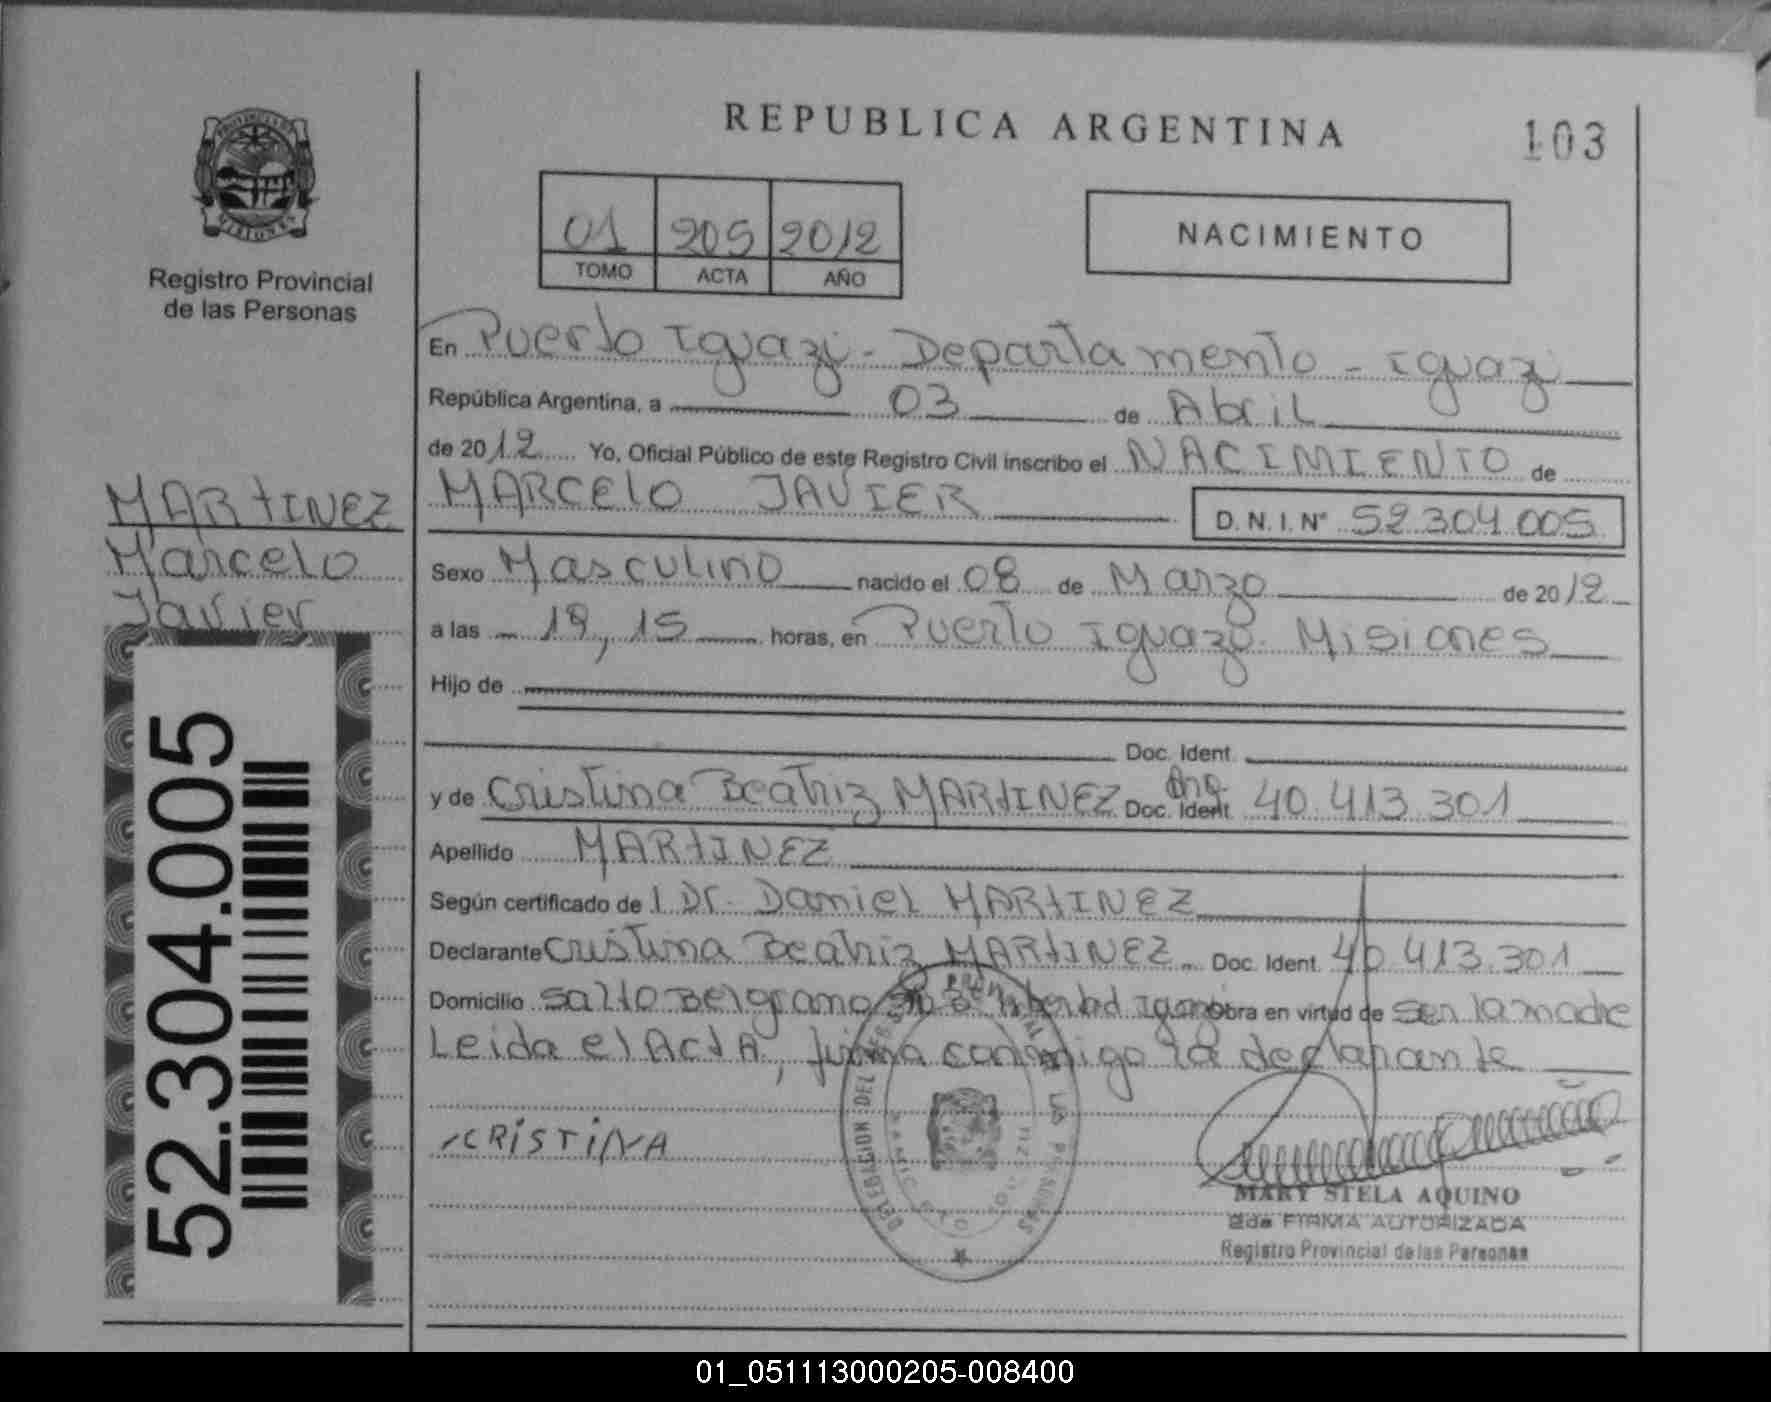 REPUBLICA ARGENTINA
103
Registro Provincial
de las Personas
01 205 2012
TOMO ACTA AÑO
NACIMIENTO
En Puerto Iguazú - Departamento - Iguazú
República Argentina, a 03 de Abril
de 2012 Yo, Oficial Público de este Registro Civil inscribo el NACIMIENTO de
MARCELO JAVIER D.N.I. Nº 52.304.005
MARTINEZ
Marcelo
Javier
Sexo Masculino nacido el 08 de Marzo de 2012
a las 19,15 horas, en Puerto Iguazú Misiones
Hijo de
Doc. Ident.
y de Cristina Beatriz MARTINEZ Doc. Ident. 40.413.301
Apellido MARTINEZ
Según certificado de l Dr. Daniel MARTINEZ
Declarante Cristina Beatriz MARTINEZ Doc. Ident. 40.413.301
Domicilio Salto Belgrano Libertad Obra en virtud de ser la madre
Leida el Acta, firma conmigo la declarante
CRISTINA
52.304.005
DELEGACION DEL LAS PERSONAS
MARY STELA AQUINO
2da FIRMA AUTORIZADA
Registro Provincial de las Personas
01_051113000205-008400